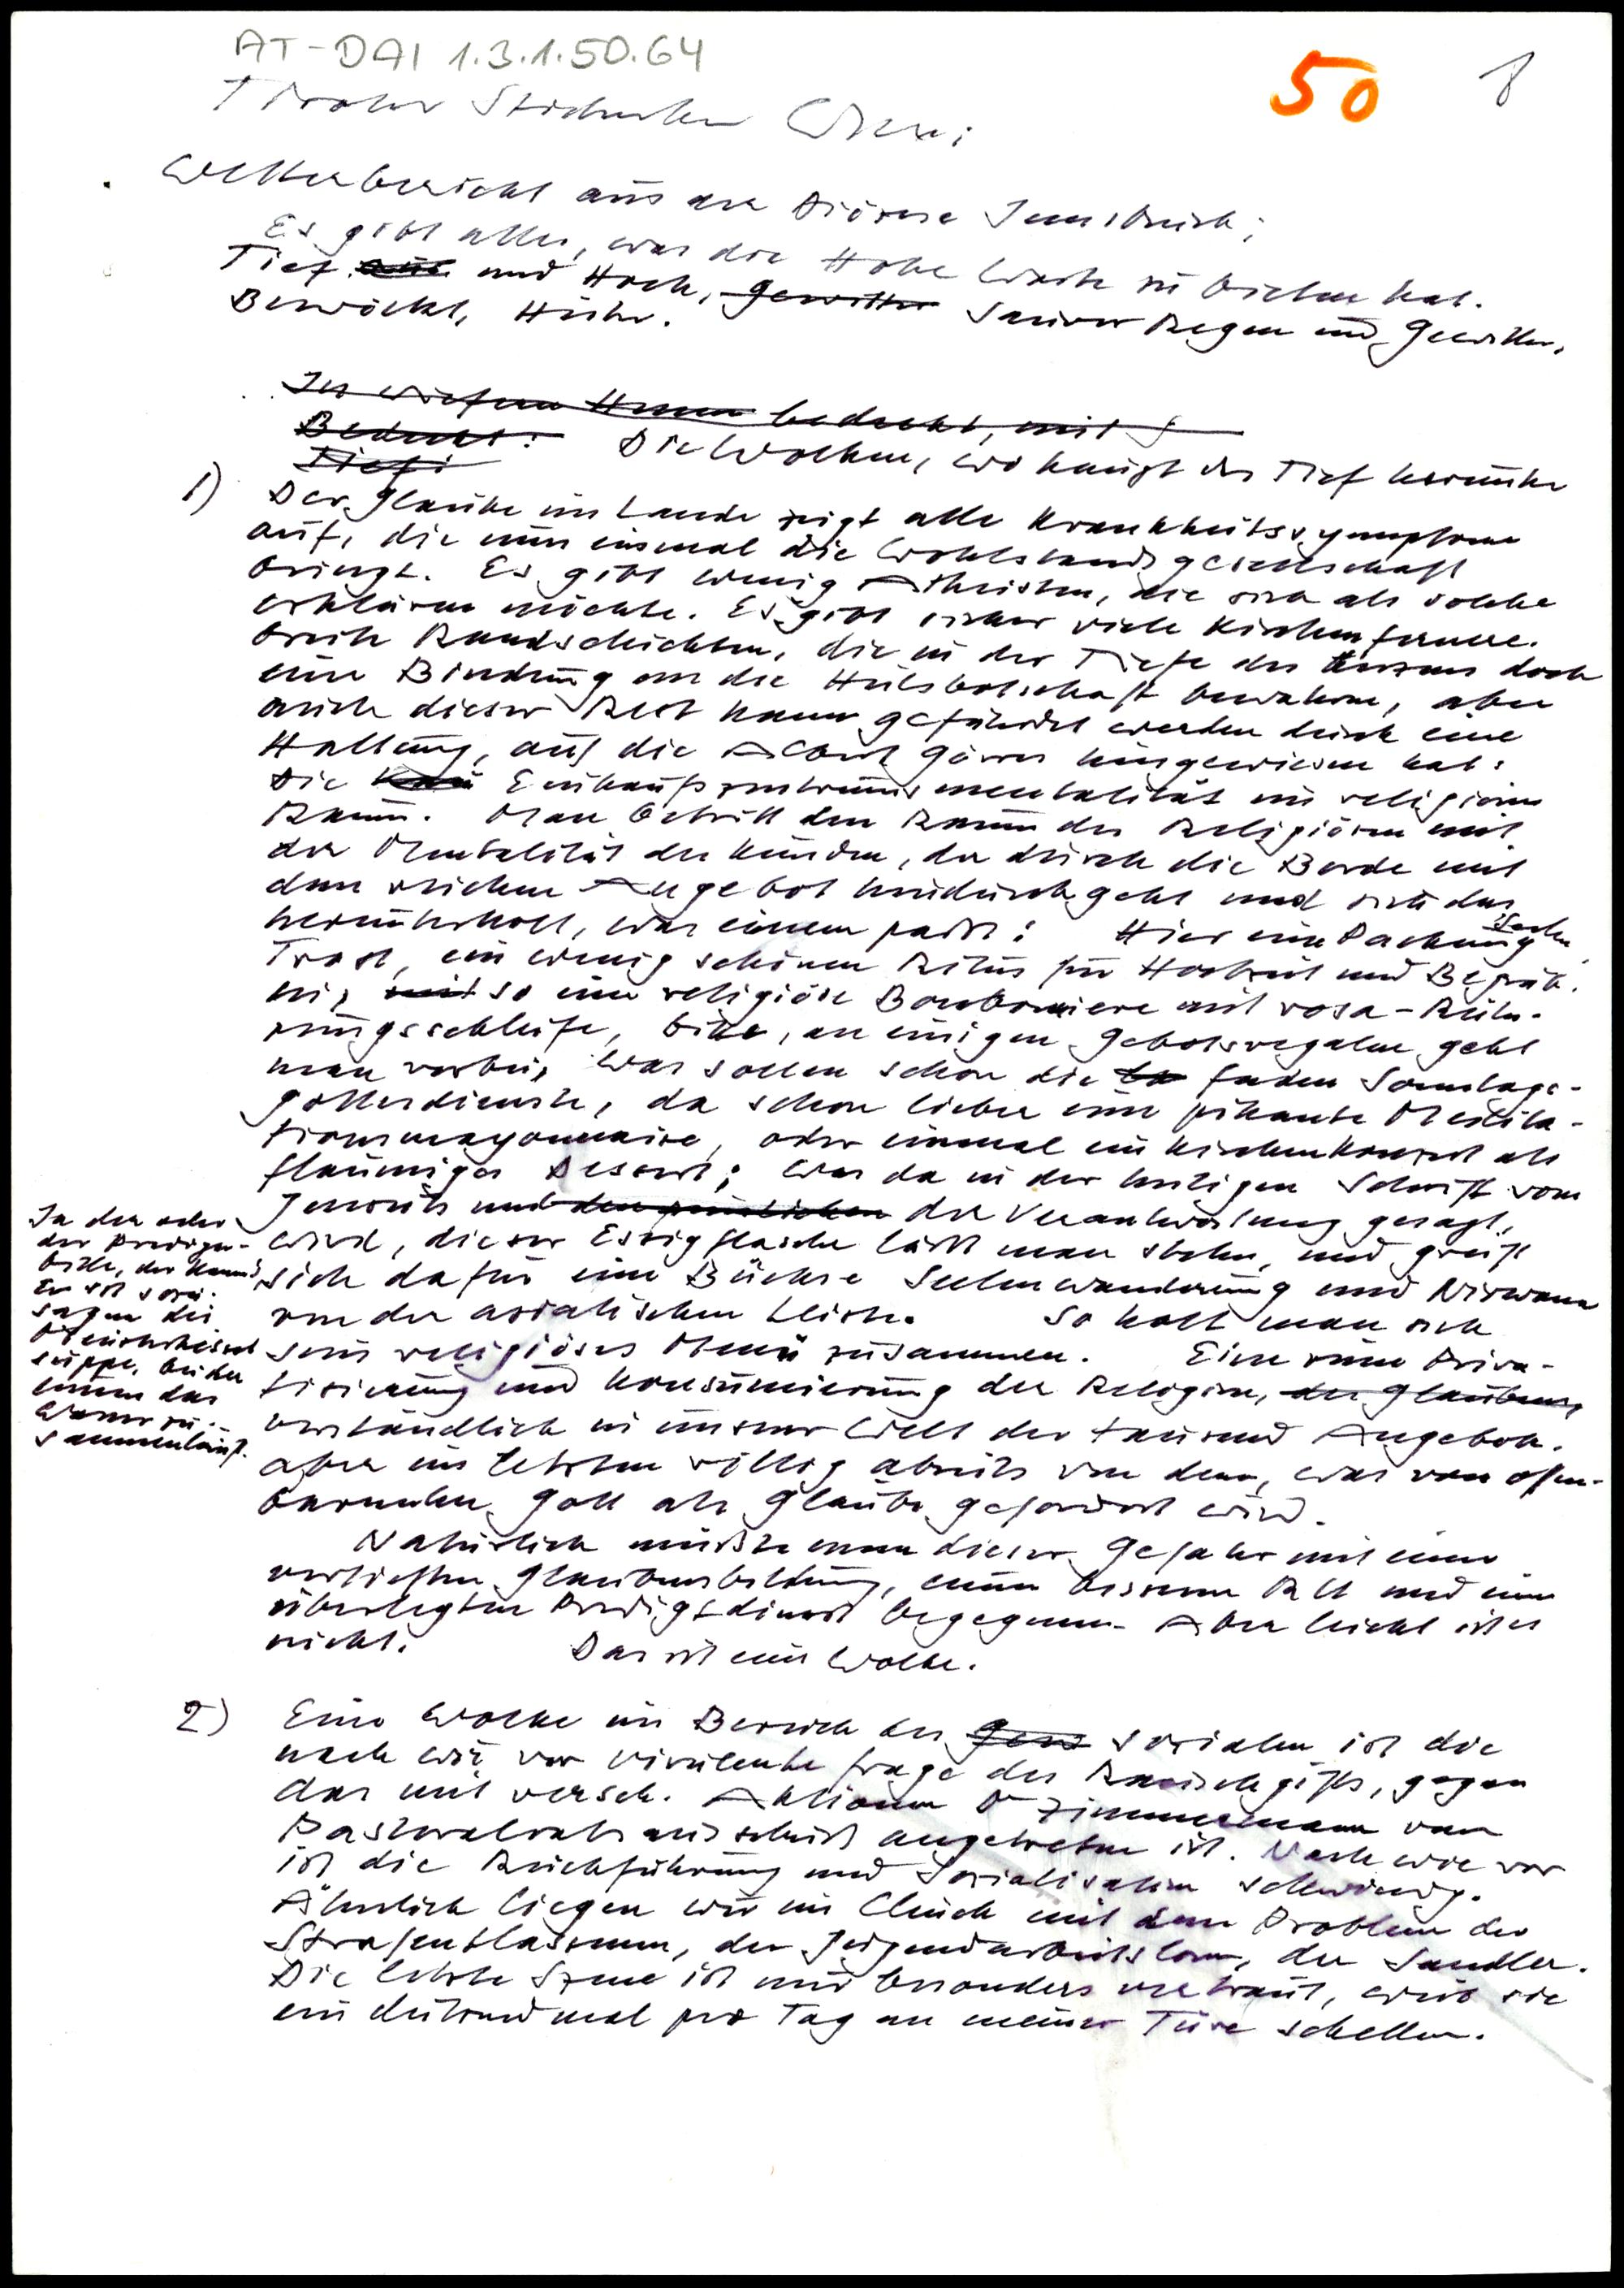 AT-DAI 1.3.1.50.64
50 8
Tiroler Studenten Wien:
Wetterbericht aus der Diözese Innsbruck:
Es gibt alles, was die Hohe Warte zu bieten hat.
Tief und Hoch, Gewitter Saurer Regen und Gewitter,
Bewölkt, Heiter.
bedeckt, mit
Bedeckt: Die Wolken, wo hängt das Tief herunter
Tief:
1) Der Glaube im Lande zeigt alle Krankheitssymptome
auf, die nun einmal die Wohlstandsgesellschaft
bringt. Es gibt wenig Atheisten, die sich als solche
erklären möchte. Es gibt sicher viele Kirchenfernere.
breite Randschichten, die in der Tiefe des Herzens doch
eine Bindung an die Heilsbotschaft bewahren, aber
auch dieser Rest kann gefährdet werden durch eine
Haltung, auf die Albert Görres hingewiesen hat:
Die Einkaufszentrumsmentalität im religiösen
Raum. Man betritt den Raum des Religiösen mit
der Mentalität des Kunden, der durch die Borde mit
dem reichen Angebot hindurchgeht und sich das
herunterholt, was einem passt: Hier eine Packung
Trost, ein wenig schönen Ritus für Hochzeit und Begräb-
nis, mit so eine religiöse Bonboniere mit rosa-Rüh-
rungsschleife, bitte, an einigen Gebotsregalen geht
man vorbei, was sollen schon die faden Sonntags-
gottesdienste, da schon lieber eine pikante Medita-
tionsmayonnaise, oder einmal ein Kirchenkonzert als
flaumiges Dessert; was da in der heiligen Schrift vom
Jenseits und den peinlichen der Verantwortung gesagt,
wird, dieser Essigflasche läßt man stehen, und greift
sich dafür eine Büchse Seelenwanderung und Nirwana
von der asiatischen Leiste. So holt man sich
sein religiöses Menü zusammen. Eine reine Priva-
tisierung und Konsumierung der Religion, des Glaubens,
verständlich in unserer Welt der tausend Angebote.
aber im letzten völlig abseits von dem, was vom offen-
barenden Gott als Glaube gefordert wird.
Ja der oder
der Prediger-
bitte, der kann's
Er ist sozu-
sagen die
suppe, bei der
einem das
Wasser zu-
sammenläuft.
Natürlich müßte man dieser Gefahr mit einer
vertieften Glaubensbildung, einem besseren RU und einem
überlegten Predigtdienst begegnen. Aber leicht ist es
nicht. Das ist eine Wolke.
2) Eine Wolke im Bereich des Sozialen ist die
nach wie vor virulente Frage des Rauschgifts, gegen
das mit versch. Aktionen Dr Zimmermann vom
Pastoralratsausschuß angetreten ist. Nach wie vor
ist die Rückführung und Sozialisation schwierig.
Ähnlich liegen wir im Clinch mit dem Problem der
Strafentlassenen, der Jugendarbeitslosen, der Sandler.
Die letzte Szene ist mir besonders vertraut, weil sie
ein dutzend mal pro Tag an meiner Türe schellen.